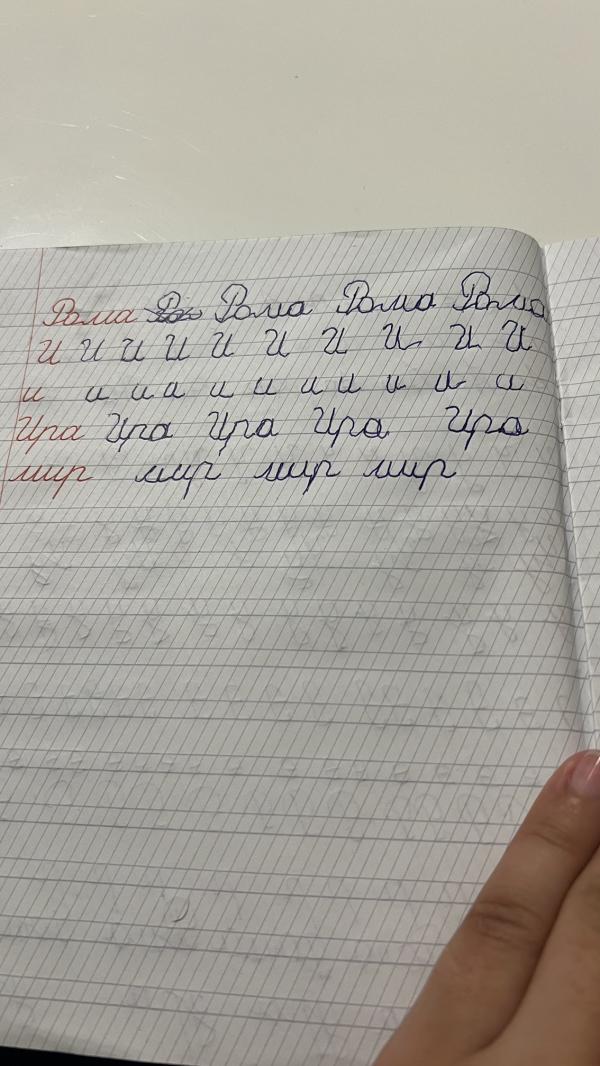 Рома Рома Рома Рома
И И И И И И И И И И
и и и и и и и и и и и
Ира Ира Ира Ира Ира
мир мир мир мир